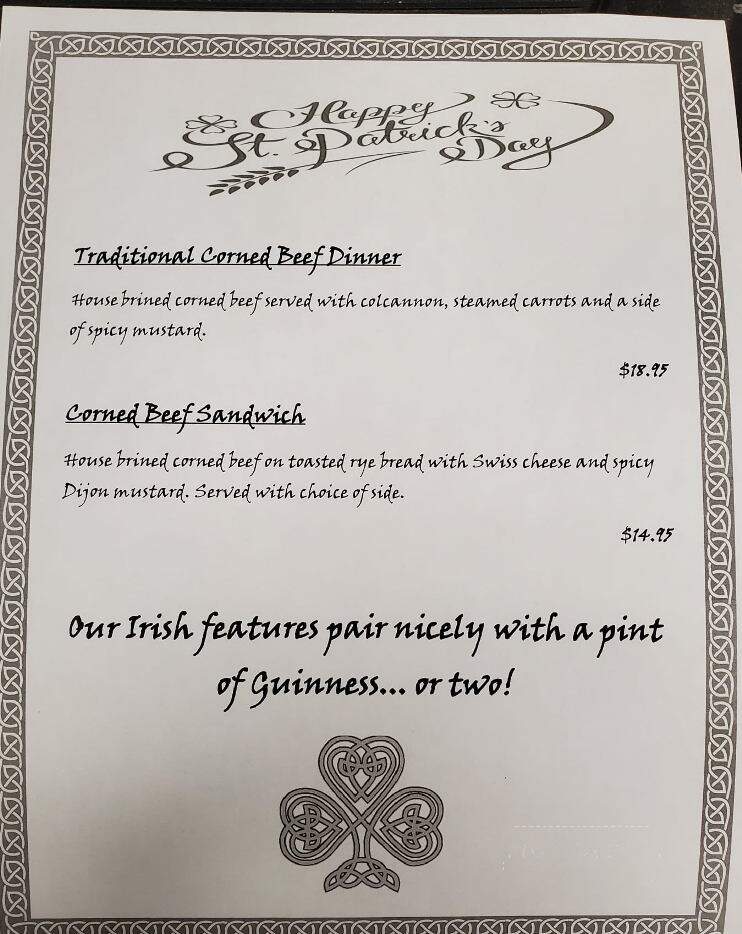 Happy
St. Patrick's
Day
Traditional Corned Beef Dinner
House brined corned beef served with colcannon, steamed carrots and a side
of spicy mustard.
$18.95
Corned Beef Sandwich
House brined corned beef on toasted rye bread with Swiss cheese and spicy
Dijon mustard. Served with choice of side.
$14.95
Our Irish features pair nicely with a pint
of Guinness... or two!